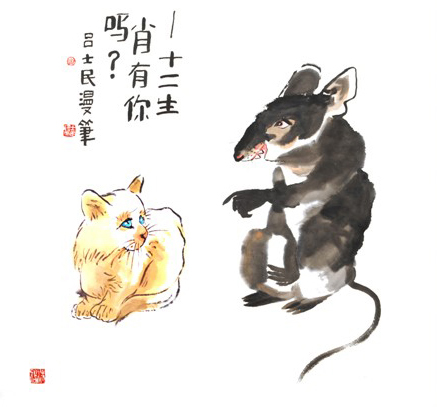 —十二生
肖有你
吗？
吕士民漫筆